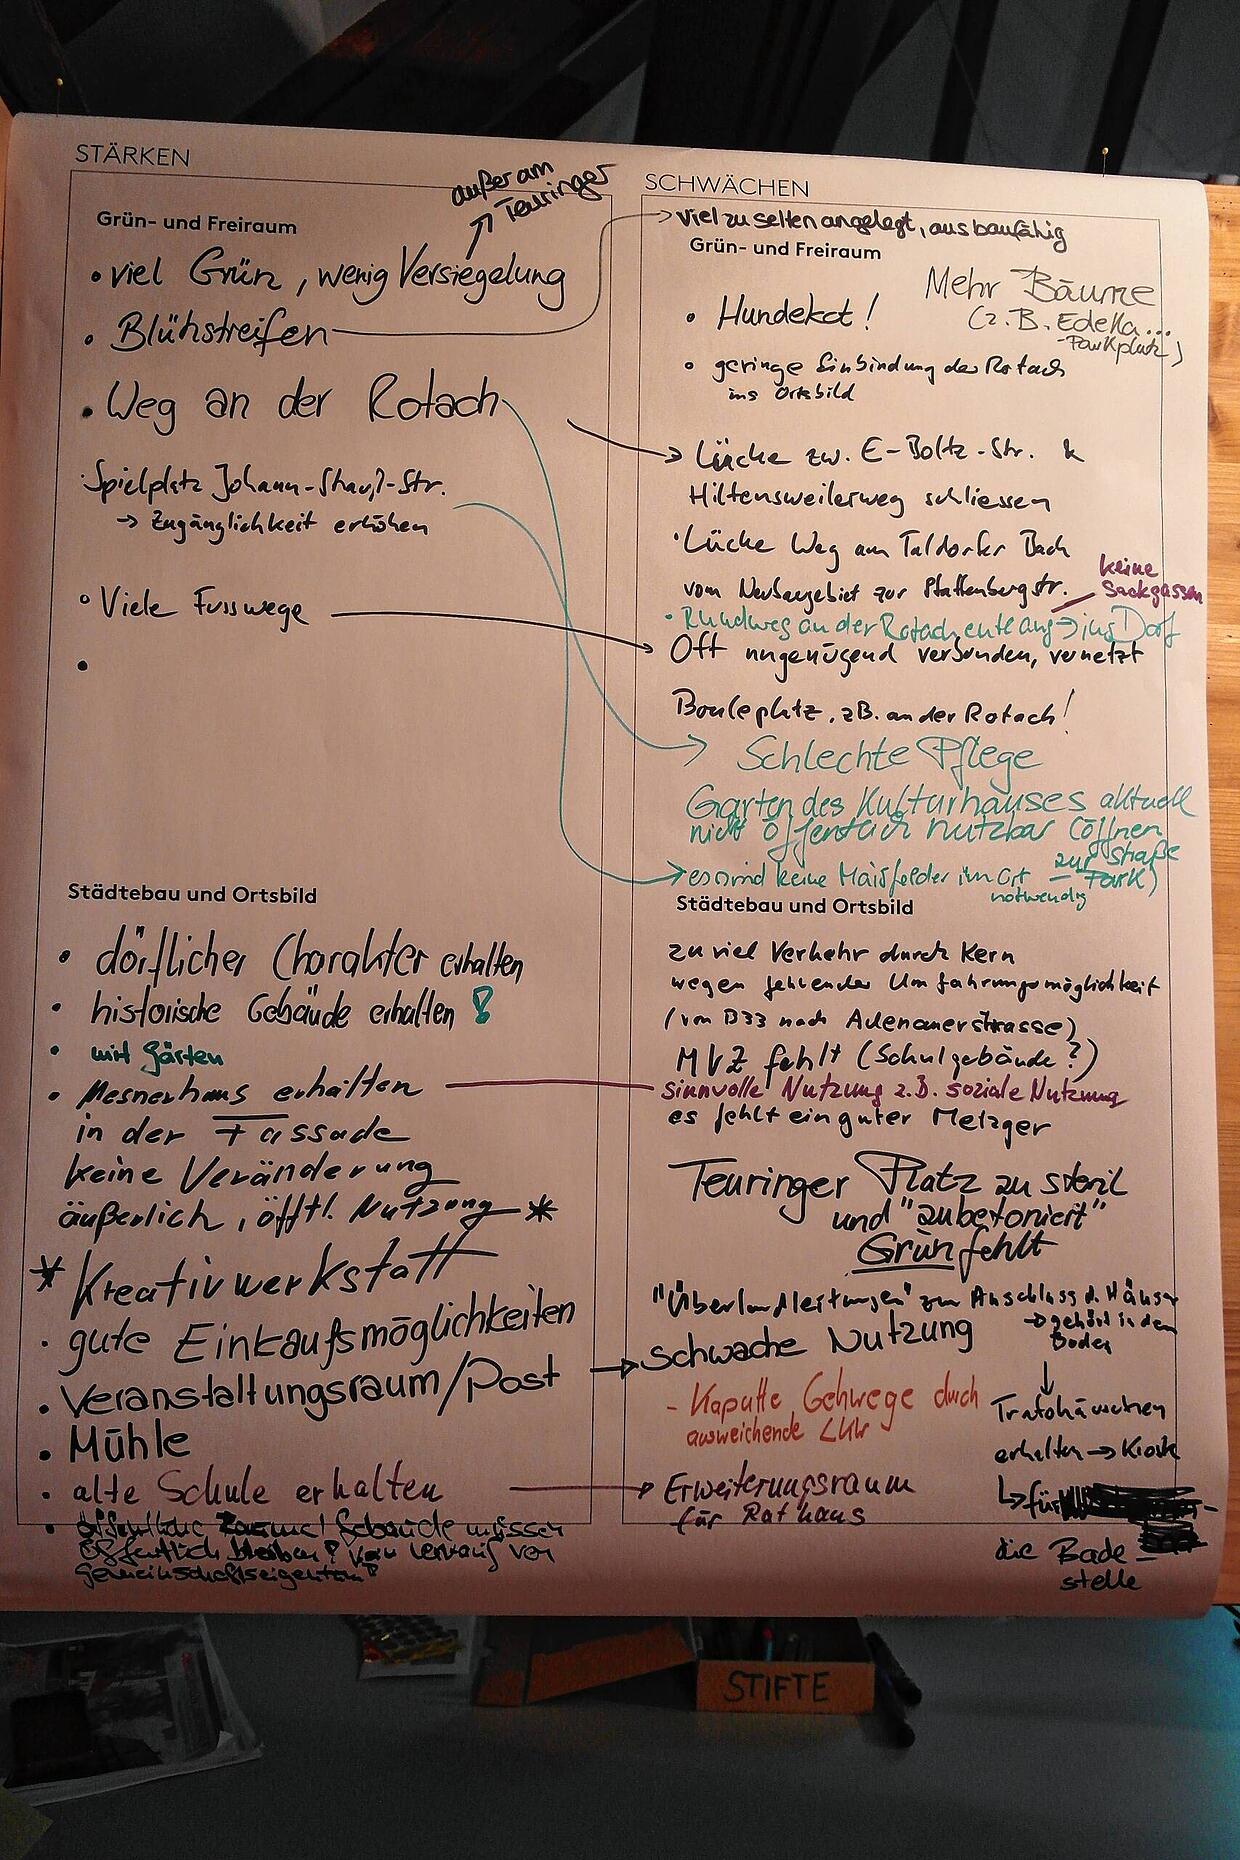 STÄRKEN
außer am
Teuringer
Grün- und Freiraum
• viel Grün, wenig Versiegelung
• Blühstreifen
• Weg an der Rotach
• Spielplatz Johann-Strauß-Str.
→ Zugänglichkeit erhöhen
• Viele Fusswege
•
Städtebau und Ortsbild
• dörflicher Charakter erhalten
• historische Gebäude erhalten !
• mit Gärten
• Mesnerhaus erhalten
in der Fassade
keine Veränderung
äußerlich, öfftl. Nutzung *
* Kreativwerkstatt
• gute Einkaufsmöglichkeiten
• Veranstaltungsraum/Post
• Mühle
• alte Schule erhalten
• öffentliche Räume/Gebäude müssen
öffentlich bleiben! Kein Verkauf von
Gemeinschaftseigentum!
SCHWÄCHEN
→ viel zu selten angelegt, ausbaufähig
Grün- und Freiraum
Mehr Bäume
(z.B. Edeka...
-Parkplatz)
• Hundekot!
• geringe Einbindung der Rotach
ins Ortsbild
→ Lücke zw. E-Boltz-Str. &
Hiltensweilerweg schliessen
• Lücke Weg am Taldorfer Bach
vom Neubaugebiet zur Plattenbergstr.
keine
Sackgassen
• Rundweg an der Rotach entlang → ins Dorf
Oft ungenügend verbunden, vernetzt
Bouleplatz, zB. an der Rotach!
→ Schlechte Pflege
Garten des Kulturhauses aktuell
nicht öffentlich nutzbar (öffnen
zur Straße
– Park)
→ es sind keine Maisfelder im Ort
notwendig
Städtebau und Ortsbild
zu viel Verkehr durch Kern
wegen fehlender Umfahrungsmöglichkeit
(von B33 nach Adenauerstrasse)
MVZ fehlt (Schulgebäude?)
sinnvolle Nutzung z.B. soziale Nutzung
es fehlt ein guter Metzger
Teuringer Platz zu steril
und "zubetoniert"
Grün fehlt
"Überlandleitungen" zum Anschluss d. Häuser
→ gehört in den
Boden
→ schwache Nutzung
- Kaputte Gehwege durch
ausweichende LKW
↓
Trafohäuschen
erhalten → Kiosk
↳ für
die Bade-
stelle
→ Erweiterungsraum
für Rathaus
STIFTE